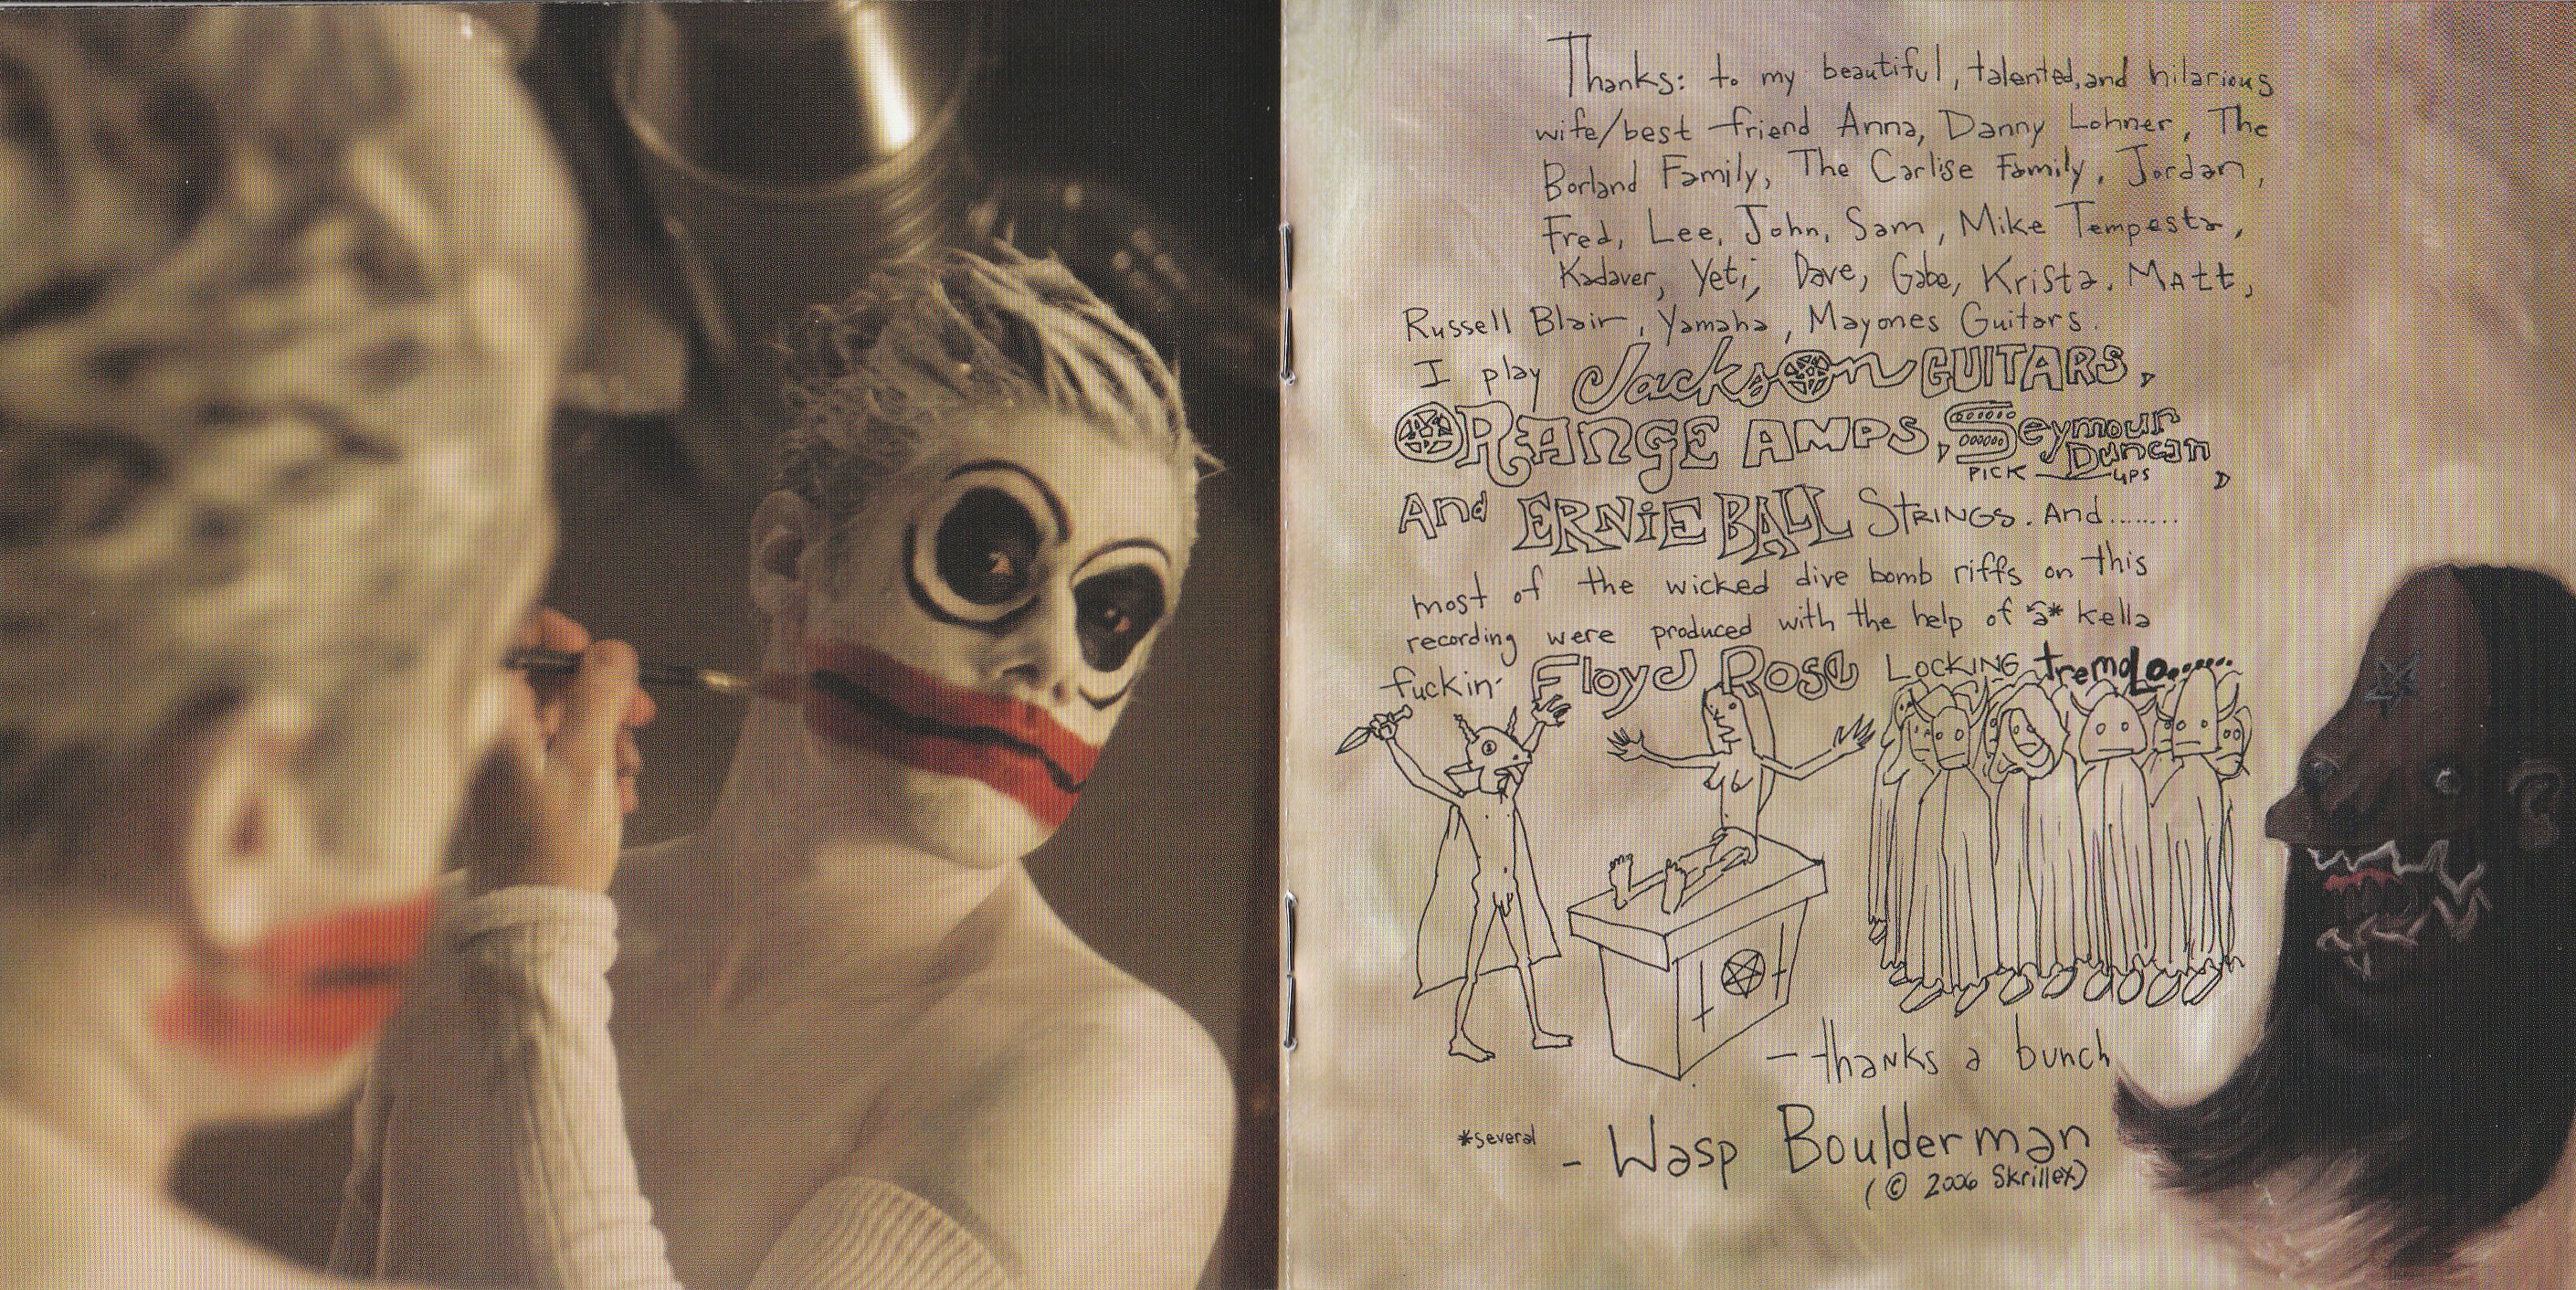 Thanks: to my beautiful, talented, and hilarious
wife/best friend Anna, Danny Lohner, The
Borland Family, The Carlise Family, Jordan,
Fred, Lee, John, Sam, Mike Tempesta,
Kadaver, Yeti, Dave, Gabe, Krista. Matt,
Russell Blair, Yamaha, Mayones Guitars.
I play Jackson GUITARS,
ORANGE AMPS, Seymour Duncan PICK-UPS,
And ERNIE BALL STRINGS. And........
most of the wicked dive bomb riffs on this
recording were produced with the help of a* kella
fuckin' Floyd Rose LOCKING tremolo......
- thanks a bunch
*several
- Wasp Boulderman
(© 2006 Skrillex)